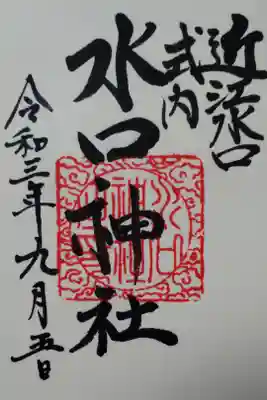 近江水口
式内
水口神社
令和三年九月五日